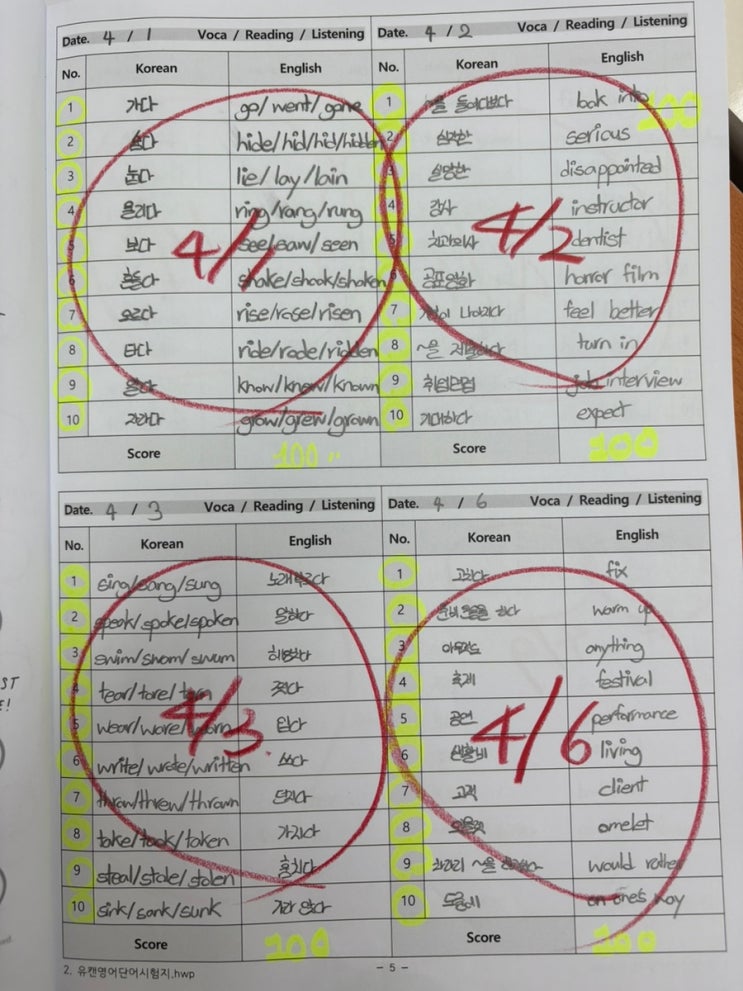 Date. 4 / 1 Voca / Reading / Listening
No. Korean English
1 가다 go/went/gone
2 숨다 hide/hid/hid/hidden
3 눕다 lie/lay/lain
4 울리다 ring/rang/rung
5 보다 see/saw/seen
6 흔들다 shake/shook/shaken
7 오르다 rise/rose/risen
8 타다 ride/rode/ridden
9 알다 know/knew/known
10 자라다 grow/grew/grown
Score 100
4/1
Date. 4 / 2 Voca / Reading / Listening
No. Korean English
1 ~을 들여다보다 look into
2 심각한 serious
3 실망한 disappointed
4 강사 instructor
5 치과의사 dentist
6 공포영화 horror film
7 나아지다 feel better
8 ~을 제출하다 turn in
9 취업면접 job interview
10 기대하다 expect
Score 100
100
4/2
Date. 4 / 3 Voca / Reading / Listening
No. Korean English
1 sing/sang/sung 노래부르다
2 speak/spoke/spoken 말하다
3 swim/swam/swum 헤엄치다
4 tear/tore/torn 찢다
5 wear/wore/worn 입다
6 write/wrote/written 쓰다
7 throw/threw/thrown 던지다
8 take/took/taken 가지다
9 steal/stole/stolen 훔치다
10 sink/sank/sunk 가라앉다
Score 100
4/3
Date. 4 / 6 Voca / Reading / Listening
No. Korean English
1 고치다 fix
2 준비운동을 하다 warm up
3 anything
4 축제 festival
5 공연 performance
6 생활비 living
7 고객 client
8 오믈렛 omelet
9 차라리 would rather
10 도중에 on one's way
Score 100
4/6
2. 유캔영어단어시험지.hwp
- 5 -